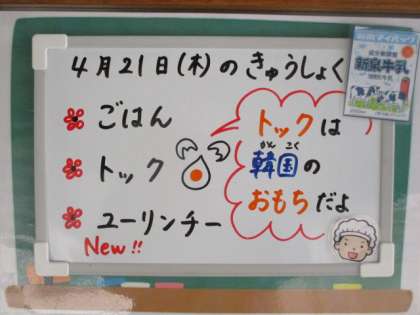 4月21日(木)のきゅうしょく
ごはん
トック
ユーリンチー
New!!
トックは
かん こく
韓国の
おもちだよ
新泉牛乳